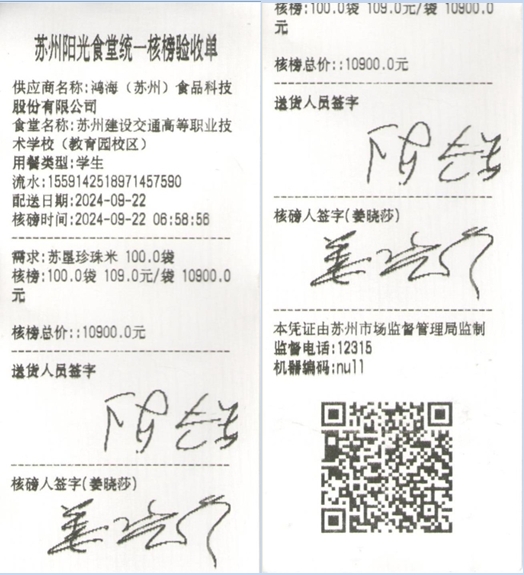 苏州阳光食堂统一核榜验收单
供应商名称:鸿海（苏州）食品科技
股份有限公司
食堂名称:苏州建设交通高等职业技
术学校（教育园校区）
用餐类型:学生
流水:1559142518971457590
配送日期:2024-09-22
核磅时间:2024-09-22 06:58:56
需求:苏垦珍珠米 100.0袋
核榜:100.0袋 109.0元/袋 10900.0
元
核榜总价::10900.0元
送货人员签字
核磅人签字(姜晓莎)
核榜:100.0袋 109.0元/袋 10900.0
元
核榜总价::10900.0元
送货人员签字
核磅人签字(姜晓莎)
本凭证由苏州市场监督管理局监制
监督电话:12315
机器编码:null